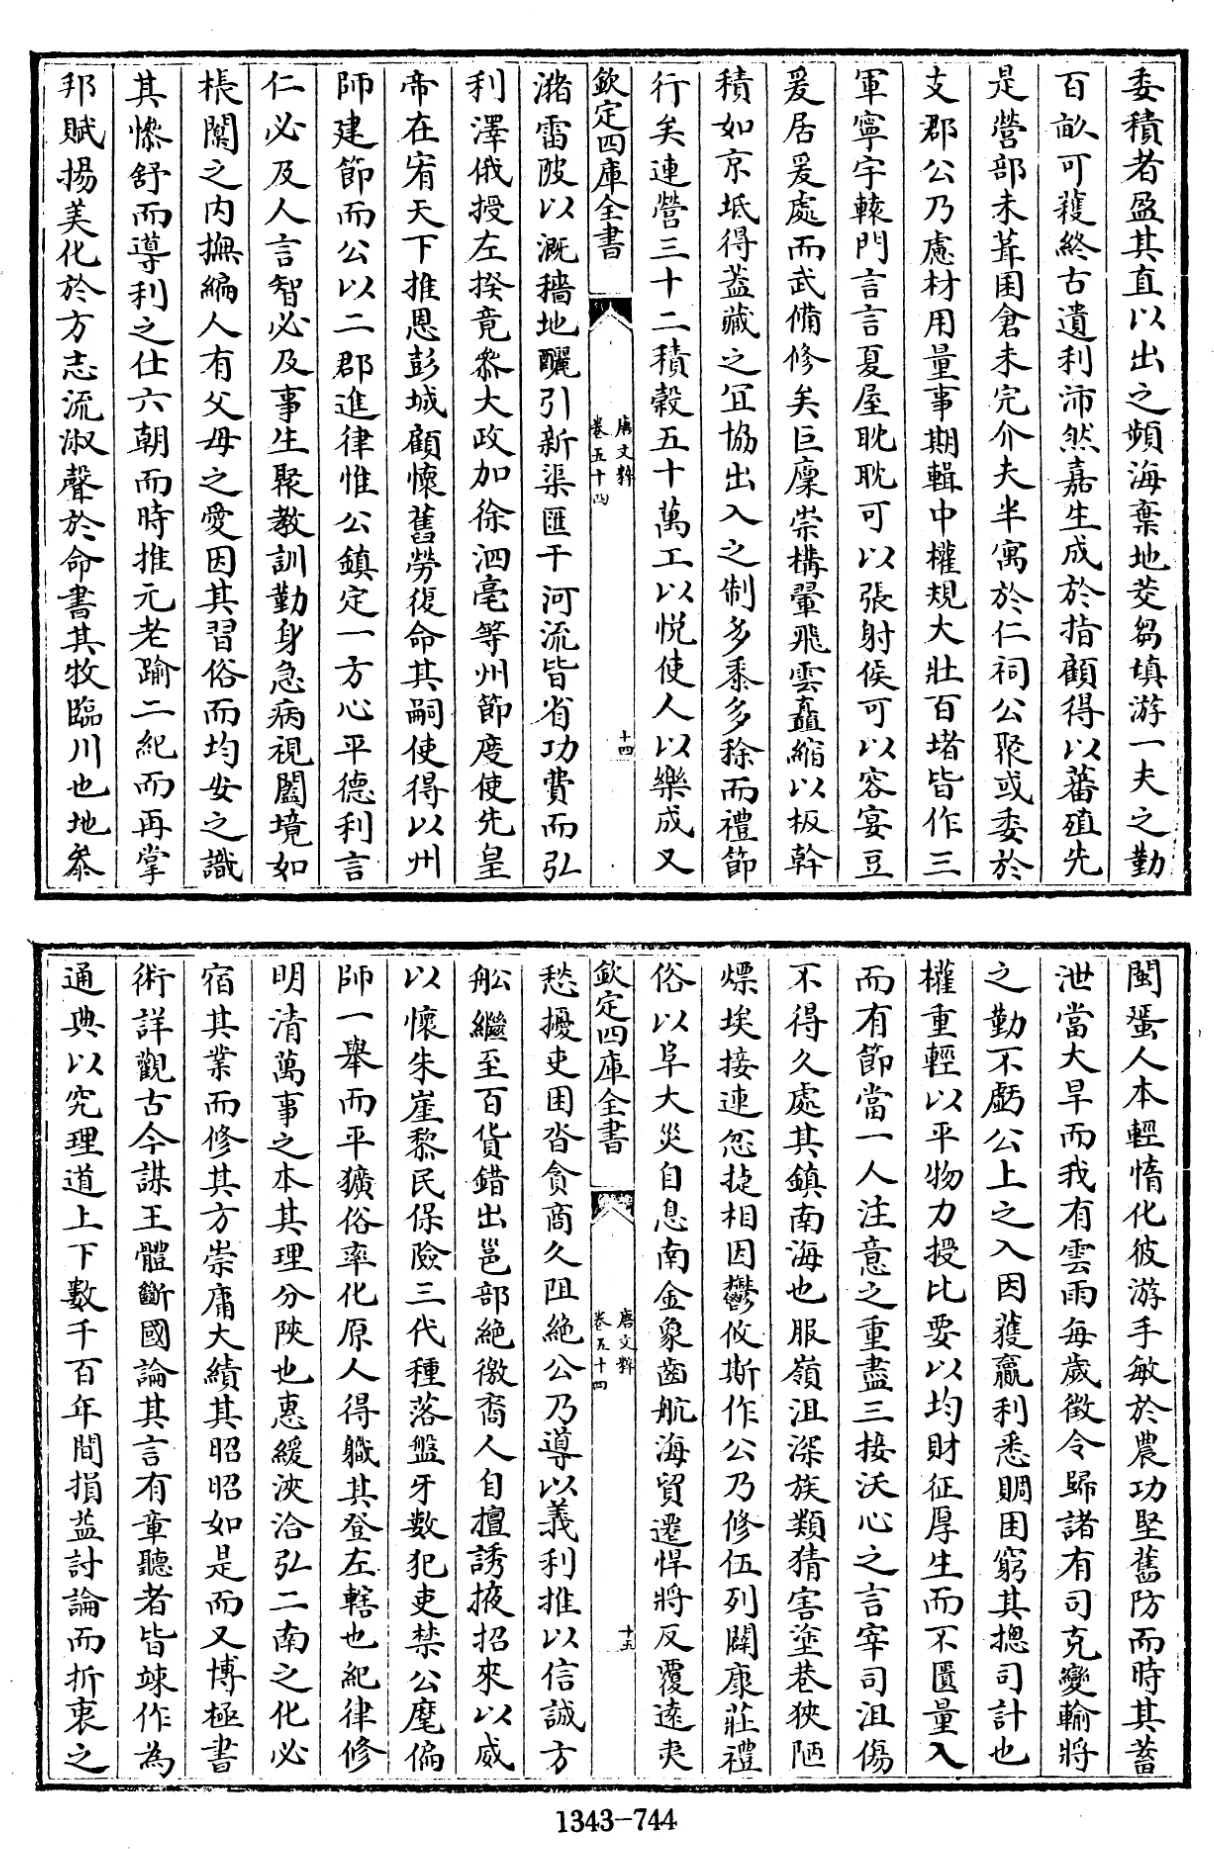 委積者盈其直以出之頻海棄地茭芻填游一夫之勤
百畝可穫終古遺利沛然嘉生成於指顧得以蕃殖先
是營部未葺囷倉未完介夫半寓於仁祠公聚或委於
支郡公乃慮材用量事期輯中權規大壯百堵皆作三
軍寧宇轅門言言夏屋耽耽可以張射侯可以容宴豆
爰居爰處而武備修矣巨廩崇構翬飛雲矗縮以板幹
積如京坻得蓋藏之宜協出入之制多黍多稌而禮節
行矣連營三十二積穀五十萬工以悅使人以樂成又
欽定四庫全書
唐文粹
卷五十四
十四
瀦雷陂以溉穡地釃引新渠匯于河流皆省功費而弘
利澤俄授左揆竟叅大政加徐泗亳等州節度使先皇
帝在宥天下推恩彭城顧懷舊勞復命其嗣使得以州
師建節而公以二郡進律惟公鎮定一方心平德利言
仁必及人言智必及事生聚教訓勤身急病視闔境如
棖闑之內撫編人有父母之愛因其習俗而均安之識
其慘舒而導利之仕六朝而時推元老踰二紀而再掌
邦賦揚美化於方志流淑聲於命書其牧臨川也地叅
閩蜑人本輕惰化彼游手敏於農功堅舊防而時其蓄
泄當大旱而我有雲雨每歲徵令歸諸有司克變輸將
之勤不虧公上之入因獲贏利悉賙困窮其摠司計也
權重輕以平物力授比要以均財征厚生而不匱量入
而有節當一人注意之重盡三接沃心之言宰司沮傷
不得久處其鎮南海也服嶺沮深族類猜害塗巷狹陋
熛埃接連忽㨗相因鬱攸斯作公乃修伍列闢康莊禮
俗以阜大災自息南金象齒航海貿遷悍將反覆遠夷
欽定四庫全書
唐文粹
卷五十四
十五
愁擾吏困沓貪商久阻絶公乃導以義利推以信誠方
舩繼至百貨錯出邕部絶徼裔人自擅誘掖招來以威
以懷朱崖黎民保險三代種落盤牙數犯吏禁公麾偏
師一舉而平獷俗率化原人得職其登左轄也紀律修
明清萬事之本其理分陝也惠緩浹洽弘二南之化必
宿其業而修其方崇庸大績其昭昭如是而又博極書
術詳觀古今謀王體斷國論其言有章聽者皆竦作為
通典以究理道上下數千百年間損益討論而折衷之
1343-744